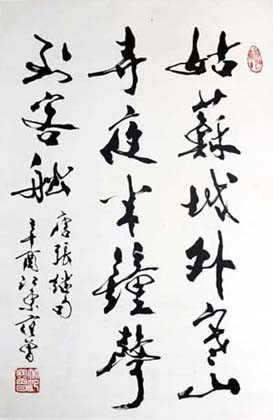 姑蘇城外寒山
寺夜半鐘聲
到客船
唐張繼句
辛酉江東范曾